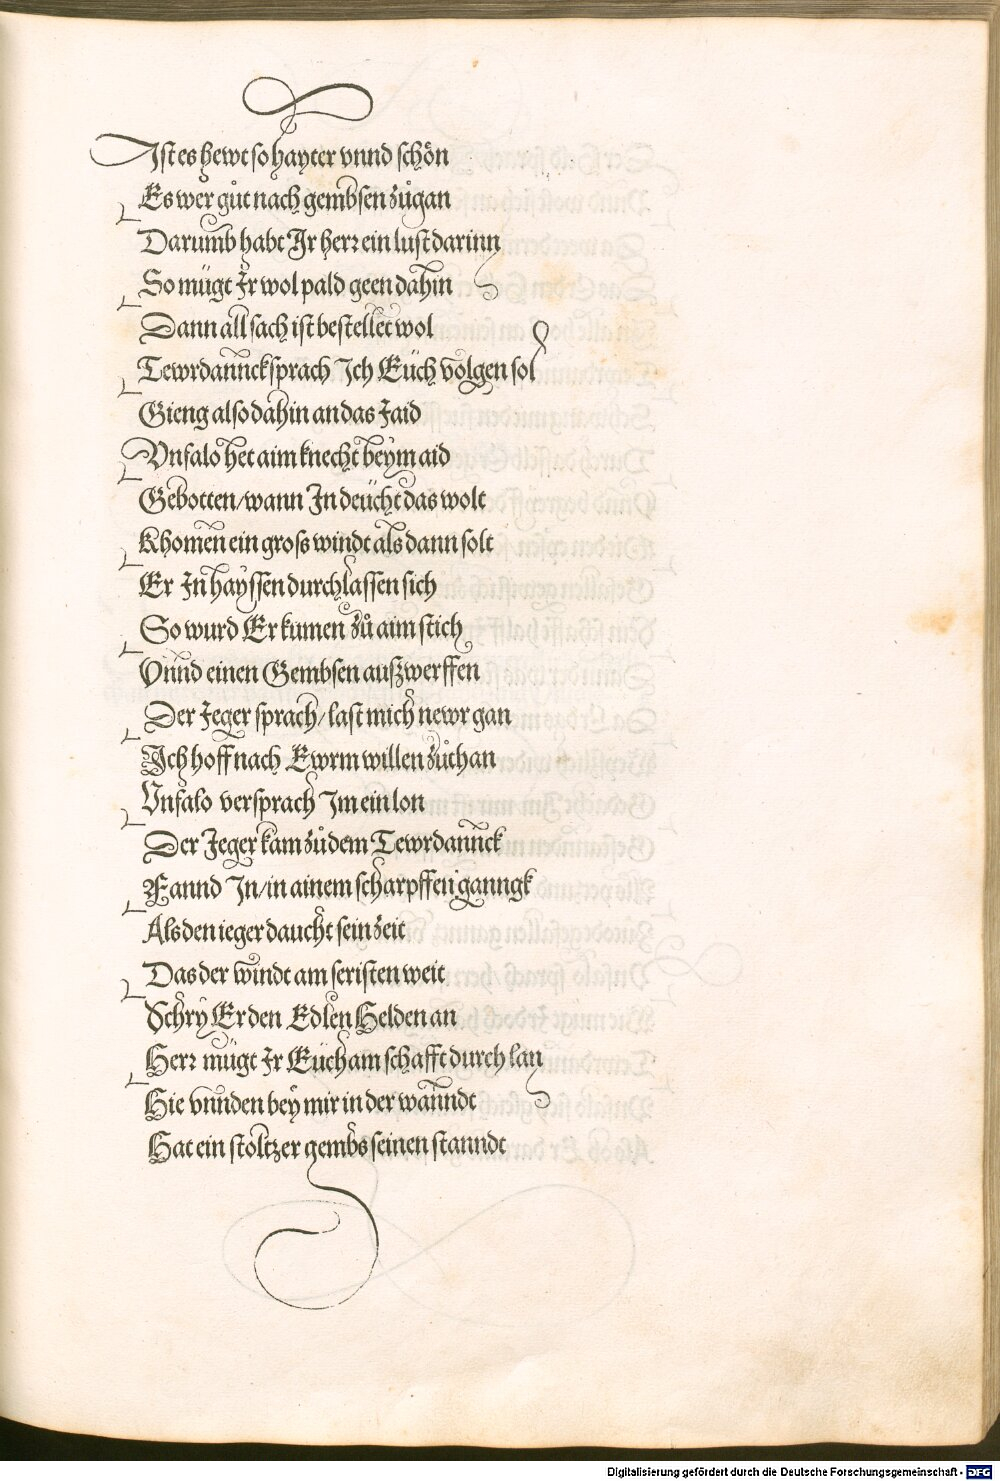 Ist es hewt so hayter vnnd schön
Es wer gůt nach gembsen zůgan
Darumb habt Ir herr ein lust darinn
So mügt Ir wol pald geen dahin
Dann all sach ist bestellet wol
Tewrdannck sprach Ich Eüch volgen sol
Gieng also dahin an das Jaid
Vnfalo het aim knecht beym aid
Gebotten/wann In deücht das wolt
Khomen ein gross windt als dann solt
Er In hayssen durchlassen sich
So wurd Er kumen zů aim stich
Vnnd einen Gembsen auszwerffen
Der Jeger sprach/last mich newr gan
Ich hoff nach Ewrm willen zůthan
Vnfalo versprach Im ein lon
Der Jeger kam zůdem Tewrdannck
Fannd In/in ainem scharpffen ganngk
Als den ieger daucht sein zeit
Das der windt am feristen weit
Schry Er den Edlen Helden an
Herr mügt Ir Eüch am schafft durch lan
Hie vnnden bey mir in der wanndt
Hat ein stoltzer gembs seinen stanndt
Digitalisierung gefördert durch die Deutsche Forschungsgemeinschaft - DFG